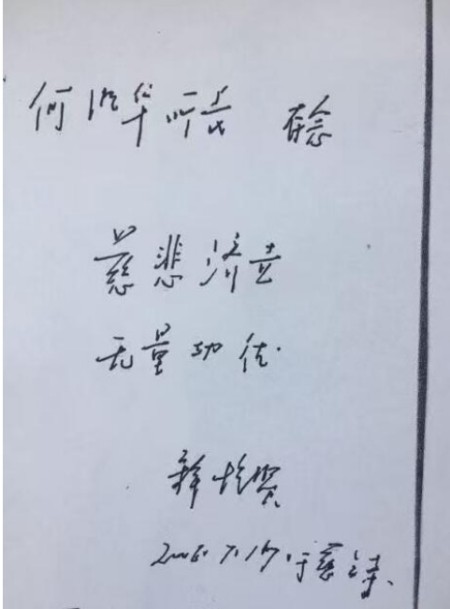 何 华 师 存念
慈悲济世
无量功德.
释 贤
2006.7.17.于慈 寺.